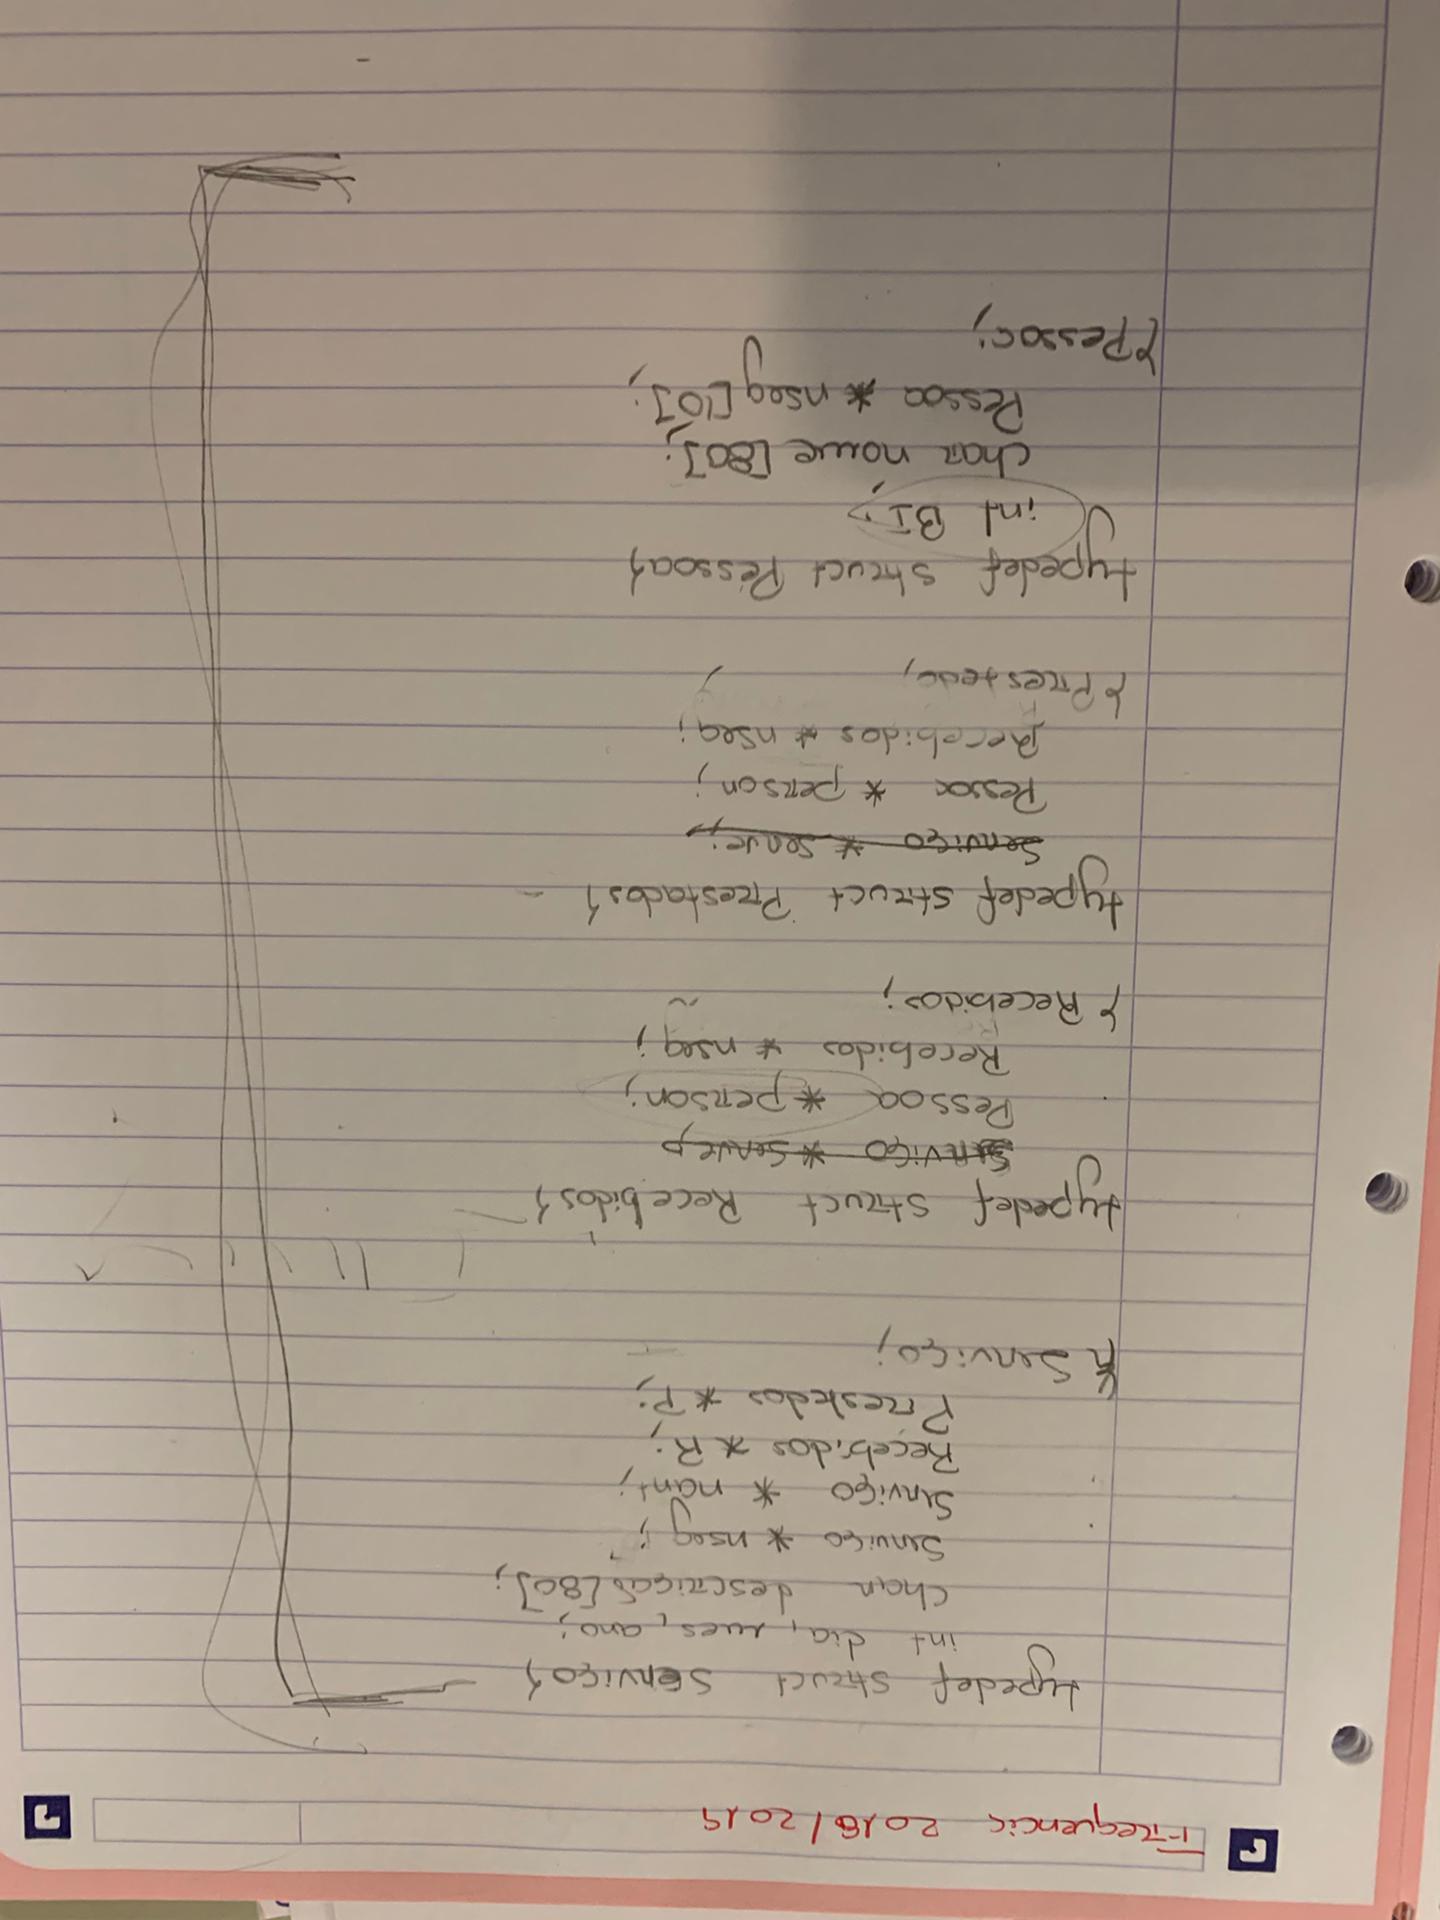 Frequencia 2018/2019
typedef struct Serviço{
int dia, mes, ano;
char descrição[80];
Serviço *nseg;
Serviço *nant;
Recebidos *R;
Prestados *P;
} Serviço;
typedef struct Recebidos{
Serviço *serv;
Pessoa *person;
Recebidos *nseg;
} Recebidos;
typedef struct Prestados{
Serviço *serv;
Pessoa *person;
Recebidos *nseg;
} Prestado;
typedef struct Pessoa{
int BI;
char nome[80];
Pessoa *nseg[10];
} Pessoa;